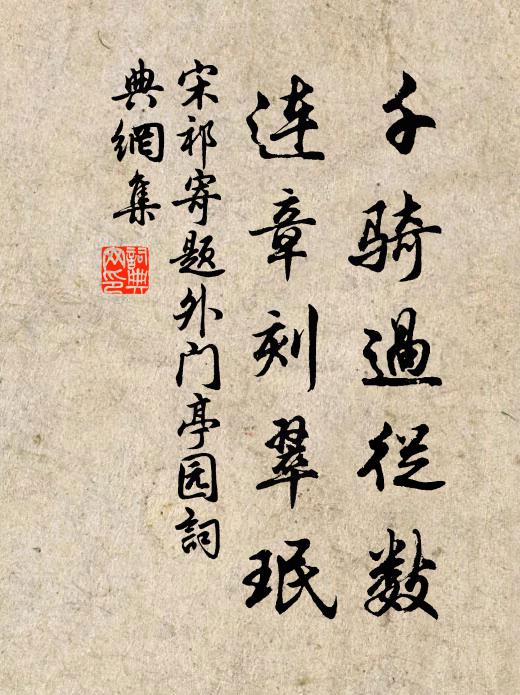 千骑過從数
连章刻翠珉
宋祁寄题外门亭园詞
典網集
詞典